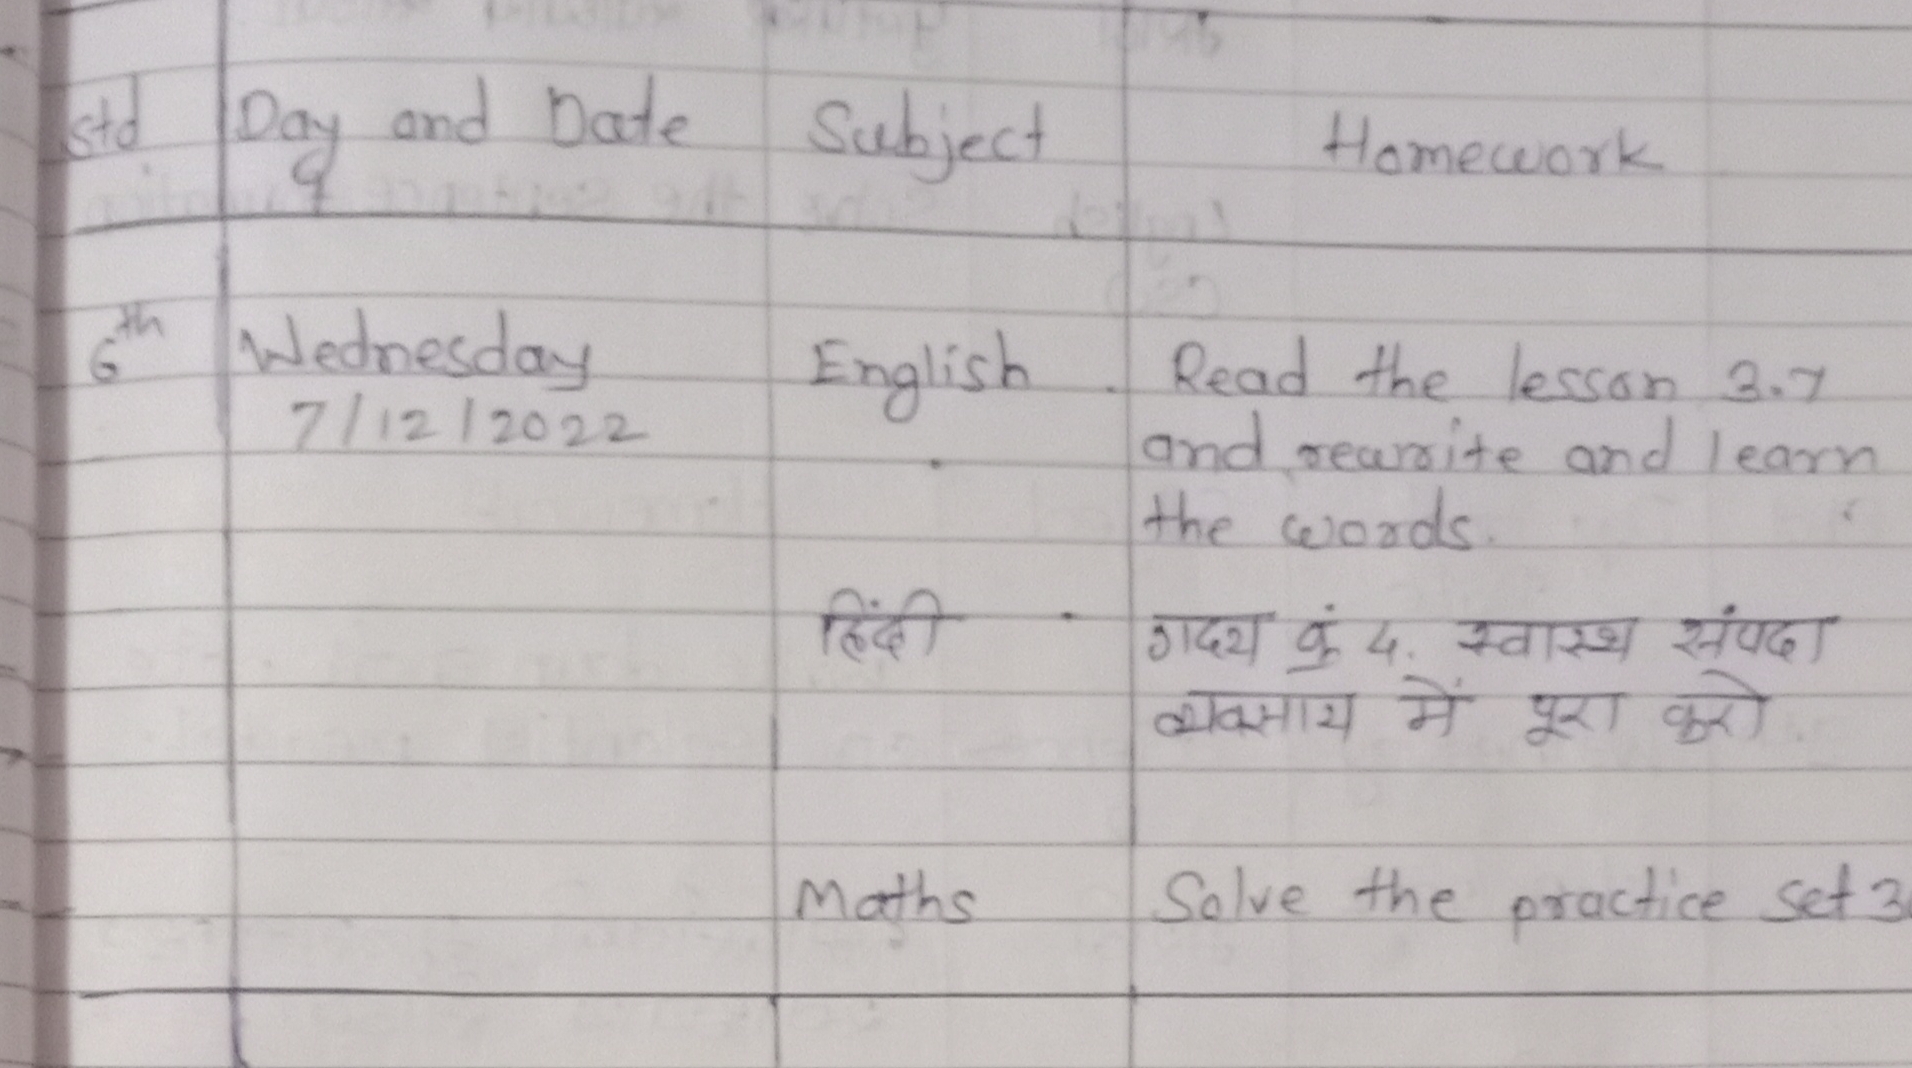 std Day and Date Subject Homework
6th Wednesday English Read the lesson 3.7
7/12/2022 and rewrite and learn
the words.
हिंदी गदय क्रं 4. स्वास्थ संपदा
व्यवसाय में पूरा करो.
Maths Solve the practice set